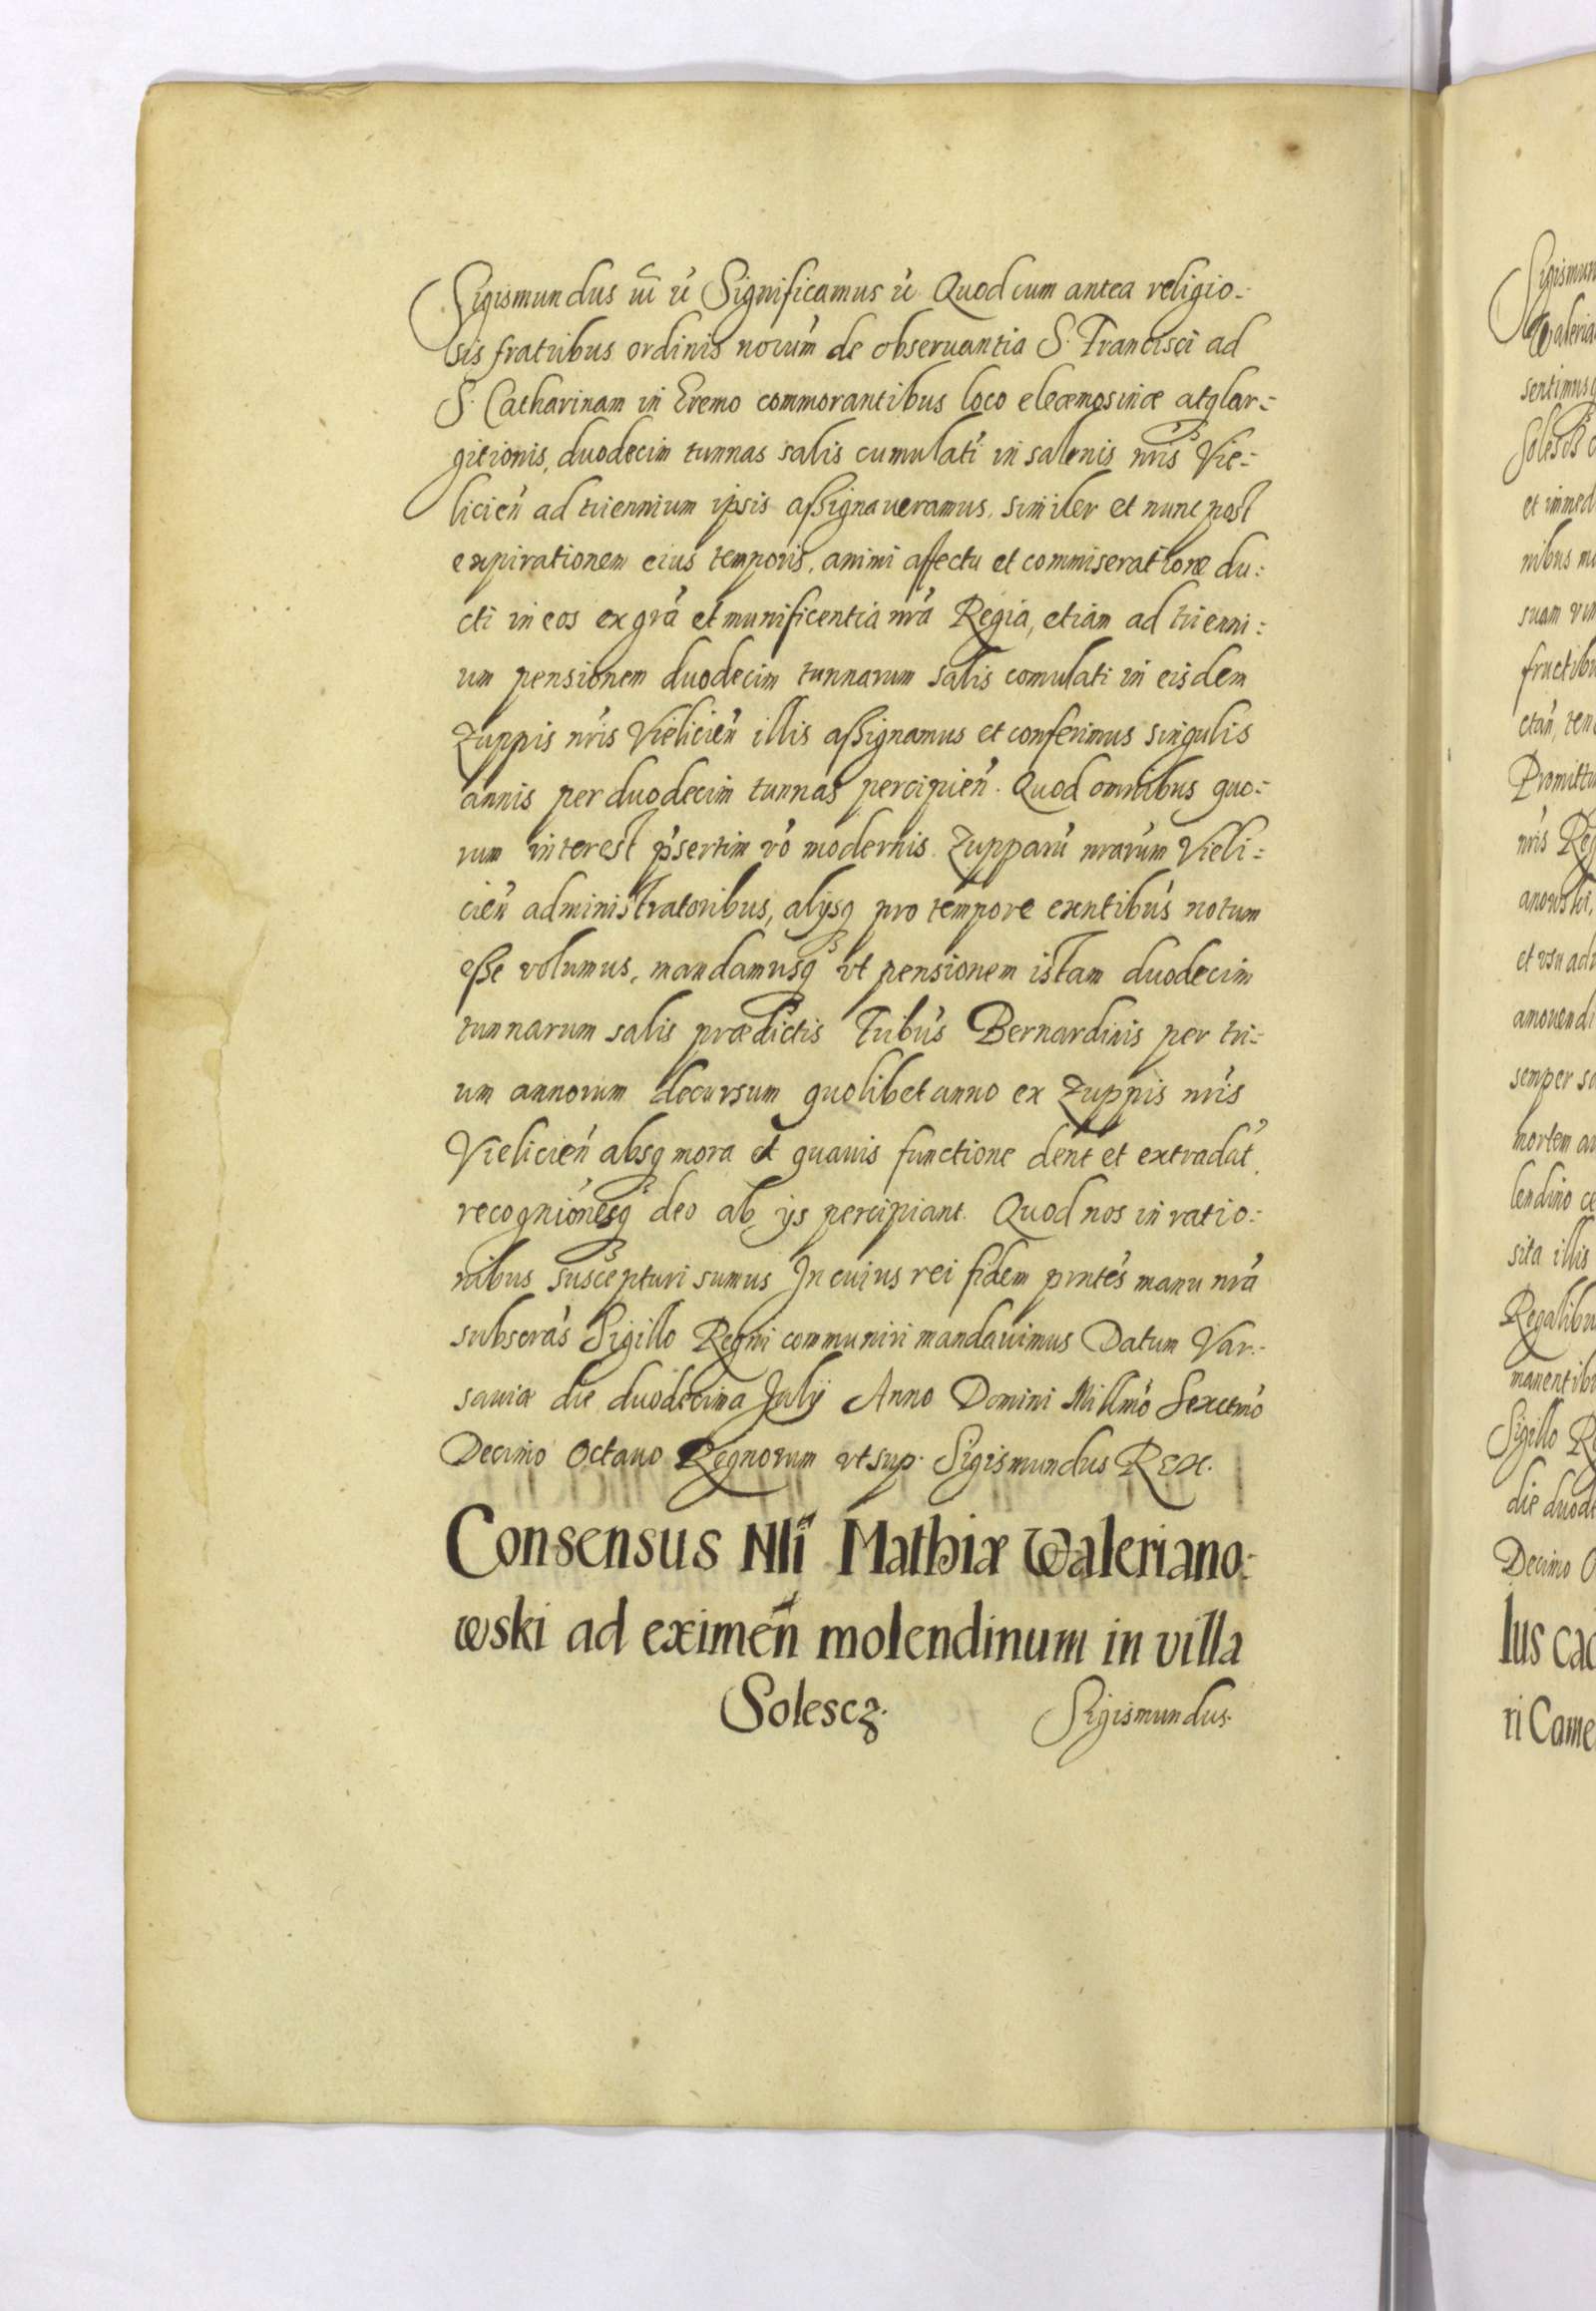 Sigismundus iii ũ Significamus ũ Quod cum antea religio-:
sis fratribus ordinis norũm de obseruantia S. Francisci ad
S. Catharinam in Eremo commorantibus loco eleæmosinæ atq lar-:
gitionis, duodecim tunnas salis cumulati in salenis nr̃is Vie-:
licień ad triennium ipsis assignaueramus, similer et nunc post
expirationem eius temporis, animi affectu et commiseratione du:
cti in eos ex gr̃a et munificentia nr̃a Regia, etiam ad trienni:
um pensionem duodecim tunnarum salis comulati in eisdem
Zuppis nr̃is Vielicień illis assignamus et conferimus singulis
annis per duodecim tunnas percipień. Quod omnibus quo-:
rum interest p̃sertim võ modernis Zupparũ nrarũm Vieli:
cień administratoribus, alijsq pro tempore exntibũs notum
esse volumus, mandamusq vt pensionem istam duodecim
tunnarum salis prædictis fribũs Bernardinis per tri-:
um annorum decursum quolibet anno ex Zuppis nr̃is
Vielicień absq mora et quauis functione dent et extradãt,
recogniõnesq deo ab ijs percipiant. Quod nos in ratio:
nibus suscepturi sumus In cuius rei fidem pn̄tes manu nr̃a
subscrãs Sigillo Regni communiri mandauimus Datum Var:-
sauiæ die duodecima Julij Anno Domini Millmõ Sexcemõ
Decimo Octauo Regnorum vt sup. Sigismundus Rex.
Consensus Nli Mathiæ Waleriano-:
wski ad eximeñ molendinum in villa
Solescz. Sigismundus.